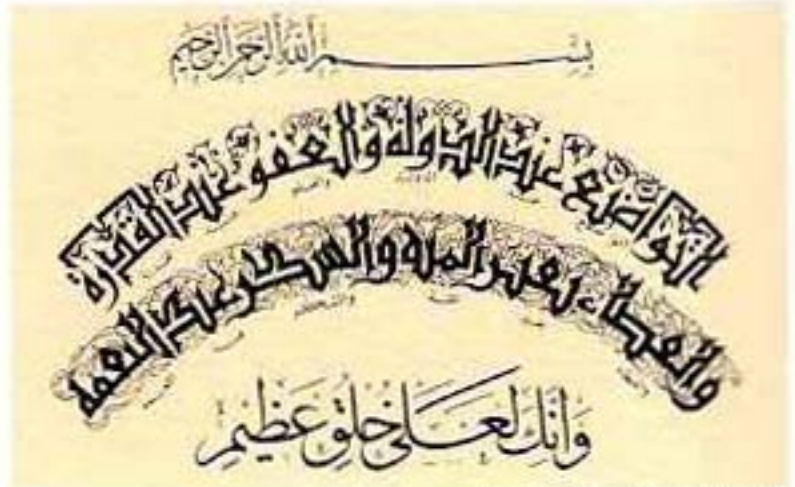 بسم الله الرحمن الرحيم
التواضع عند الدولة والعفو عند القدرة
والعطاء بغير المنة والشكر عند النعمة
وَإِنَّكَ لَعَلَى خُلُقٍ عَظِيمٍ